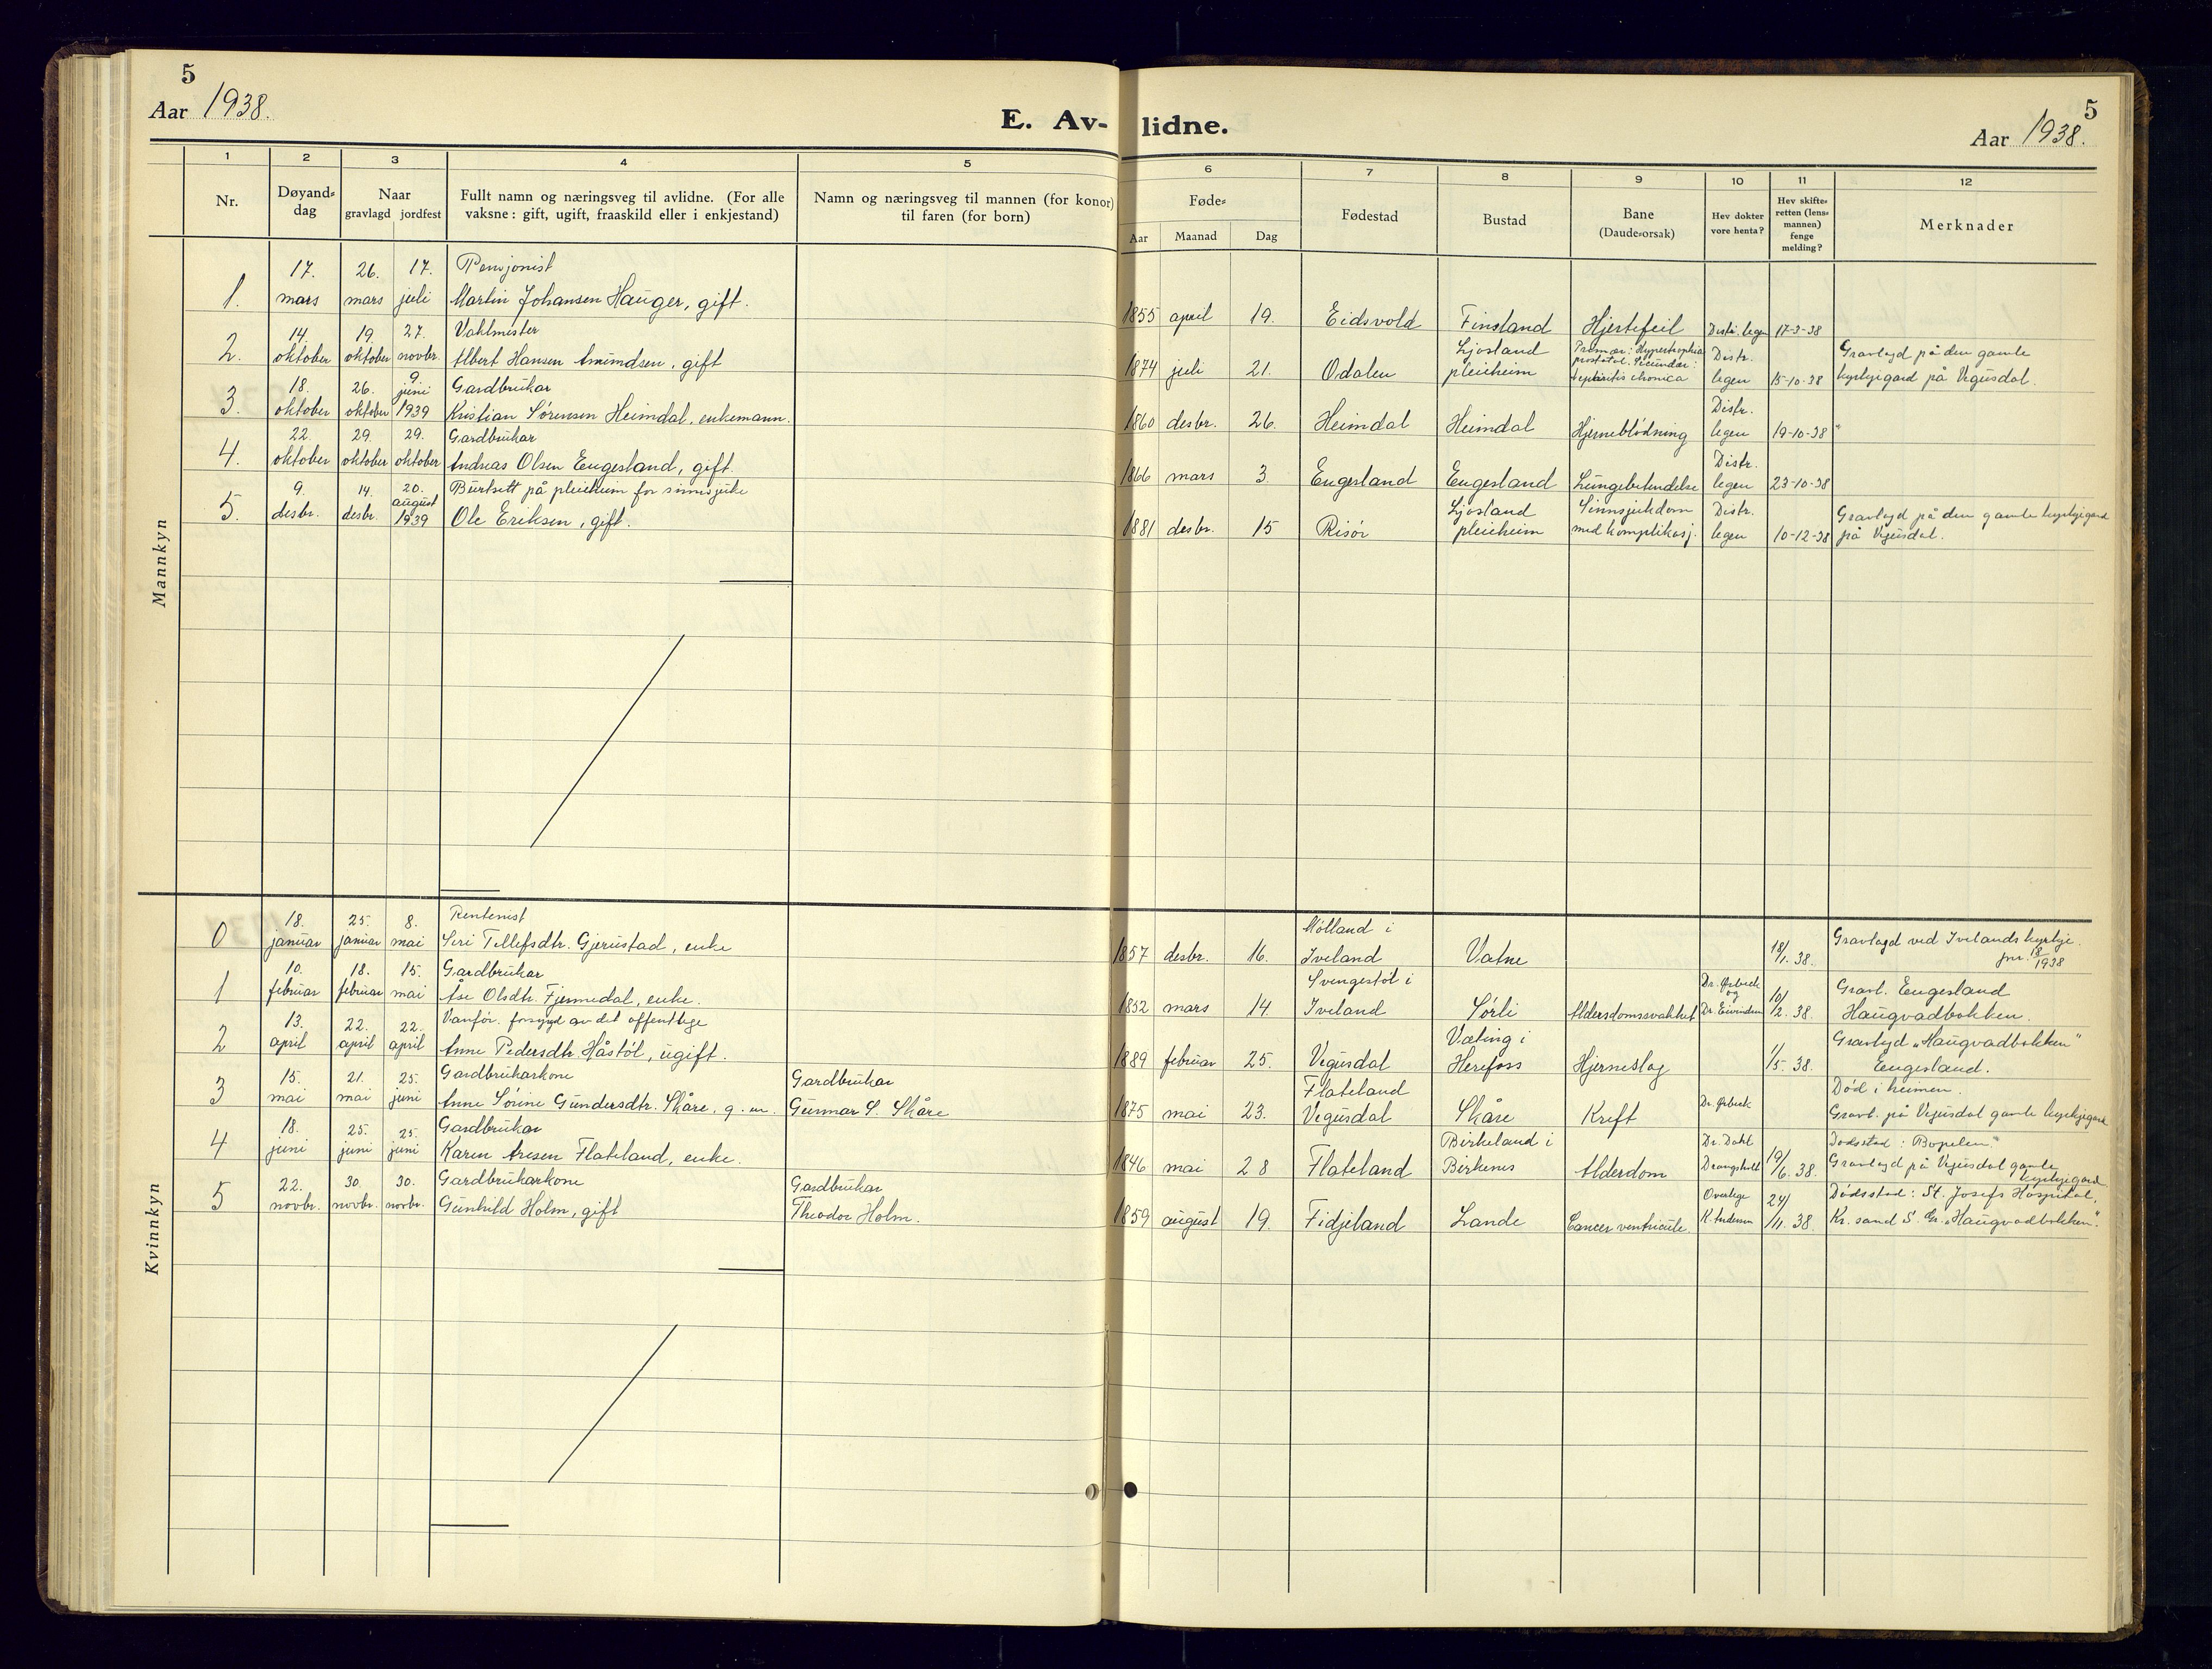 5
Aar 1938.
E. Av-lidne.
5
Aar 1938.
1 2 3 4 5 6 7 8 9 10 11 12
Nr.
Døyand-dag
Naar
gravlagd jordfest
Fullt namn og næringsveg til avlidne. (For alle
vaksne: gift, ugift, fraaskild eller i enkjestand)
Namn og næringsveg til mannen (for konor)
til faren (for born)
Føde-
Aar Maanad Dag
Fødestad
Bustad
Bane
(Daude-orsak)
Hev dokter
vore henta?
Hev skifte-
retten (lens-
mannen)
fenge
melding?
Merknader
Mannkyn
17. 26. 17. Pensjonist
1. mars mars juli Martin Johansen Hauger, gift. 1855 april 19. Eidsvold Finsland Hjertefeil Distr. legen 17-3-38
14. 19. 27. Vaktmester Ljosland Primær: Hypertrophia Distr. Gravlagd på den gamle
2. oktober oktober novbr. Albert Hansen Amundsen, gift 1874 juli 21. Odalen pleieheim prostatae. Secundær: legen 15-10-38 kyrkjegard på Vegusdal.
18. 26. 9 juni Gardbrukar Distr.
3. oktober oktober 1939 Kristian Sørensen Heimdal, enkemann. 1860 desbr. 26. Heimdal Heimdal Hjerneblödning legen 19-10-38
22. 29. 29. Gardbrukar Distr.
4. oktober oktober oktober Andreas Olsen Engesland, gift. 1866 mars 3. Engesland Engesland Lungebetendelse legen 23-10-38
9. 14. 20. august Burtsett på pleieheim for sinnsjuke Ljosland Sinnsjukdom Distr. Gravlagd på den gamle kyrkjegard
5. desbr. desbr. 1939 Ole Eriksen, gift. 1881 desbr. 15 Risør pleieheim med komplikasj. legen 10-12-38 på Vegusdal.
Kvinnkyn
18. 25. 8. Rentenist Mölland i Gravlagd ved Ivelands kyrkje.
0 januar januar mai Siri Tellefsdtr. Gjerustad, enke 1857 desbr. 16. Iveland Vatne 18/1. 38. 1938
10. 18. 15. Gardbrukar Svengestöl i Dr. Ørbeck og Gravl. Engesland
1 februar februar mai Åse Olsdtr. Fjermedal, enke. 1852 mars 14. Iveland Sörli Aldersdomssvakhet Dr. 10/2. 38. Haugvadbokken.
13. 22. 22. Vanför. forsyrgd av det offentlege Væting i Gravlagd "Haugvadbokken"
2 april april april Anne Pedersdtr. Håstöl, ugift. 1889 februar 25. Vegusdal Herefoss Hjerneslag 1/5. 38. Engesland.
15. 21. 25. Gardbrukarkone Gardbrukar Flateland Död i heimen.
3 mai mai juni Anne Sörine Gundersdtr. Skåre, g. m. Gunmar S. Skåre 1875 mai 23. Vegusdal Skåre Kreft Dr. Ørbeck Gravl. på Vegusdal gamle kyrkjegard
18. 25. 25. Gardbrukar Birkeland i Dr. Dahl Dødsstad: "Bopelen."
4 juni juni juni Karen Aresen Flateland, enke. 1846 mai 28 Flateland Birkenes Alderdom Drangsholt 19/6. 38. Gravlagd på Vegusdal gamle kyrkjegard
22. 30. 30. Gardbrukarkone Gardbrukar Overlege 24/ Dödsstad: St. Josefs Hospital,
5 novbr. novbr. novbr. Gunhild Holm, gift Theodor Holm. 1859 august 19. Fidjeland Lande Cancer ventriculi. K. Andersen /11. 38. Kr. sand S. Gr. "Haugvadbokken".